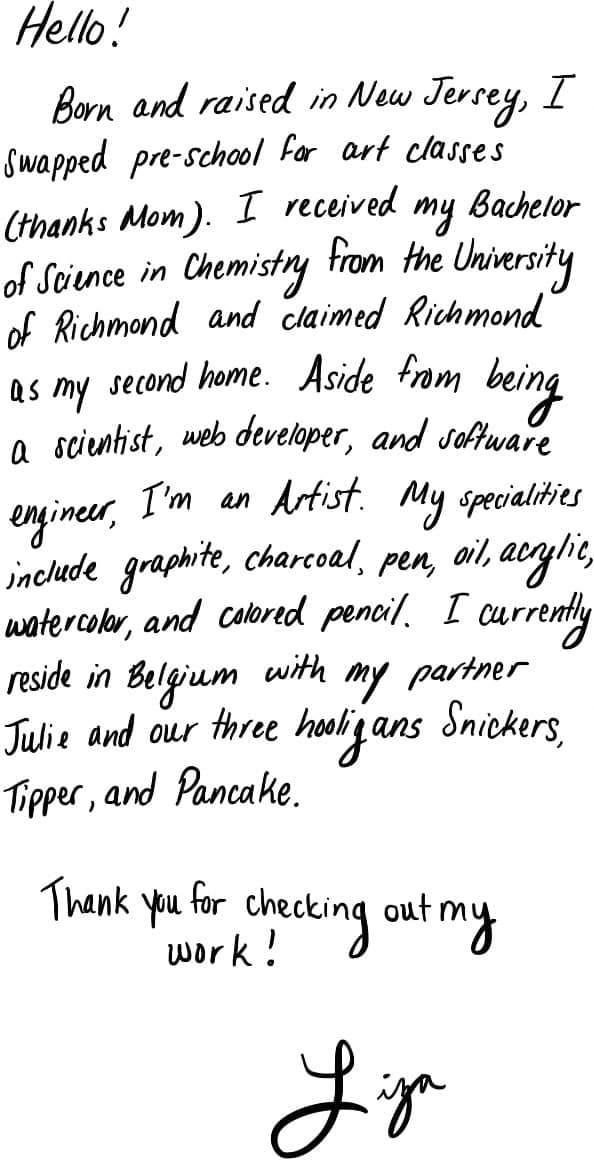 Hello!
Born and raised in New Jersey, I
swapped pre-school for art classes
(thanks Mom). I received my Bachelor
of Science in Chemistry from the University
of Richmond and claimed Richmond
as my second home. Aside from being
a scientist, web developer, and software
engineer, I'm an Artist. My specialities
include graphite, charcoal, pen, oil, acrylic,
watercolor, and colored pencil. I currently
reside in Belgium with my partner
Julie and our three hooligans Snickers,
Tipper, and Pancake.
Thank you for checking out my
work!
Liza